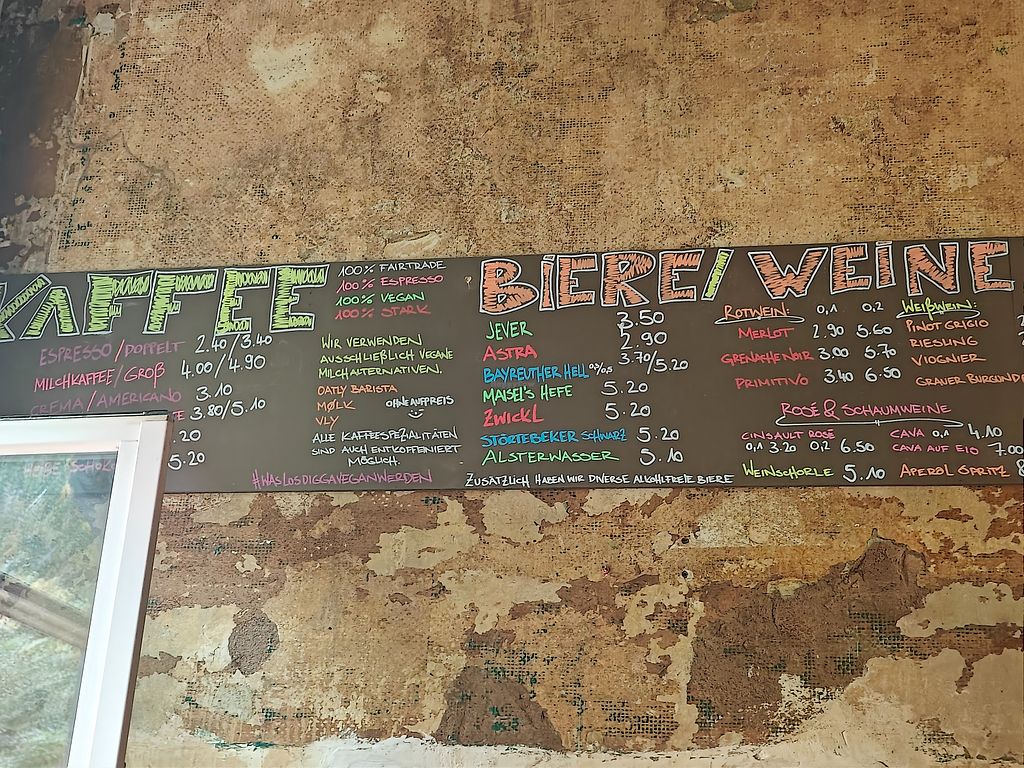 KAFFEE
100% FAIRTRADE
100% ESPRESSO
100% VEGAN
100% STARK
ESPRESSO/DOPPELT 2.40/3.40
MILCHKAFFEE/GROß 4.00/4.90
CREMA/AMERICANO 3.10
3.80/5.10
.20
5.20
WIR VERWENDEN
AUSSCHLIEßLICH VEGANE
MILCHALTERNATIVEN.
OATLY BARISTA
MØLK OHNE AUFPREIS
VLY
ALLE KAFFEESPEZIALITÄTEN
SIND AUCH ENTKOFFEINIERT
MÖGLICH.
#WASLOSDIGGAVEGANWERDEN
BIERE/WEINE
JEVER 3.50
ASTRA 2.90
BAYREUTHER HELL 0,3/0,5 3.70/5.20
MAISEL'S HEFE 5.20
ZWICKL 5.20
STÖRTEBEKER SCHWARZ 5.20
ALSTERWASSER 5.10
ZUSÄTZLICH HABEN WIR DIVERSE ALKOHLFREIE BIERE
ROTWEIN: 0,1 0,2
MERLOT 2.90 5.60
GRENACHE NOIR 3.00 5.70
PRIMITIVO 3.40 6.50
WEIßWEIN:
PINOT GRIGIO
RIESLING
VIOGNIER
GRAUER BURGUND
ROSÉ & SCHAUMWEINE
CINSAULT ROSÉ
0,1 3.20 0,2 6.50
WEINSCHORLE 5.10
CAVA 0,1 4.10
CAVA AUF EIS 7.00
APEROL SPRITZ 8